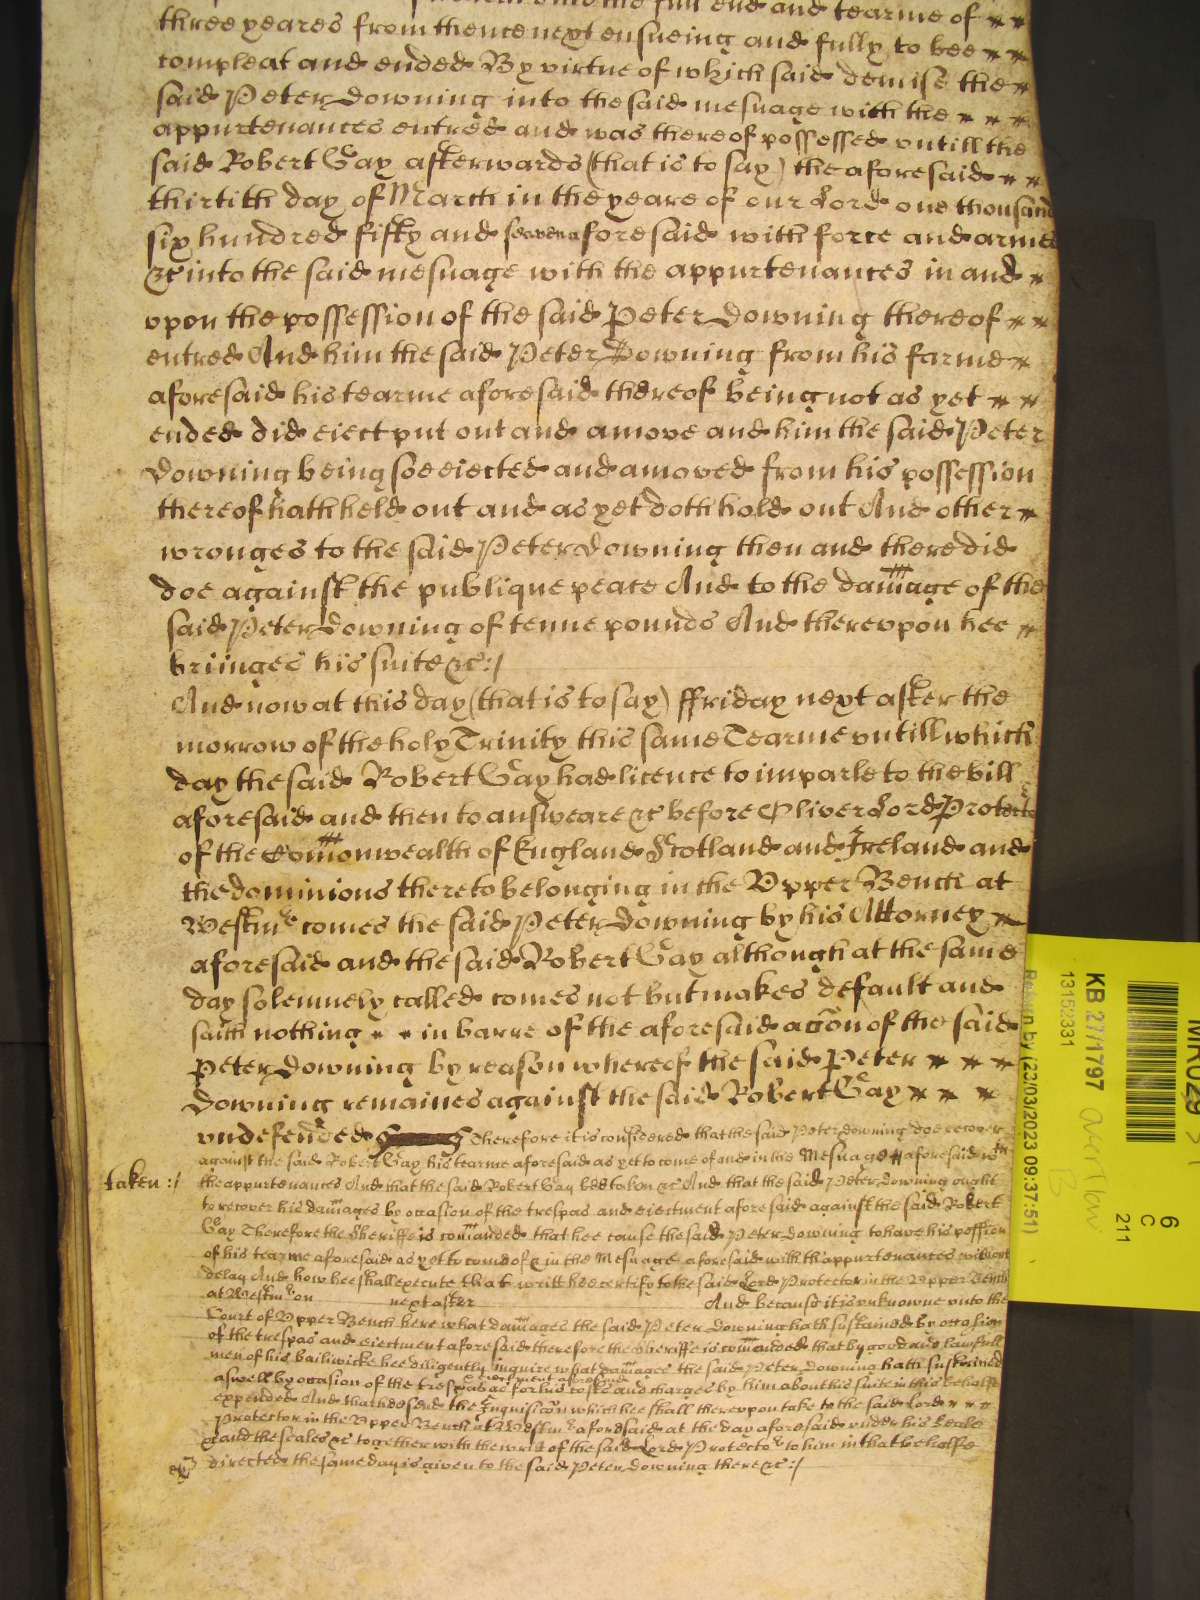 unto the full end and tearme of
three yeares from thence next ensueing and fully to bee
compleat and ended By virtue of which said demise the
said Peter Downing into the said mesuage with the
appurtenances entred and was thereof possessed untill the
said Robert Gay afterwards (that is to say) the aforesaid
thirtith day of March in the yeare of our Lord one thousand
six hundred fifty and seaven aforesaid with force and armes
&c into the said mesuage with the appurtenances in and
vpon the possession of the said Peter Downing thereof
entred And him the said Peter Downing from his farme
aforesaid his tearme aforesaid thereof being not as yet
ended did eiect put out and amove and him the said Peter
Downing being soe eiected and amoved from his possession
thereof hath held out and as yet doth hold out And other
wronges to the said Peter Downing then and there did
doe against the publique peace And to the damage of the
said Peter Downing of tenne pounds And therevpon hee
bringes his suite &c:/
And now at this day (that is to say) ffriday next after the
morrow of the holy Trinity this same Tearme vntill which
day the said Robert Gay had licence to imparle to the bill
aforesaid and then to answeare &c before Oliver Lord Protector
of the Comonwealth of England Scotland and Ireland and
the dominions thereto belonging in the Vpper Bench at
Westmr comes the said Peter Downing by his Attorney
aforesaid and the said Robert Gay although at the same
day solemnely called comes not but makes default and
saith nothing in barre of the aforesaid acc̃on of the said
Peter Downing by reason whereof the said Peter
Downing remaines against the said Robert Gay
vndefended Therefore it is considered that the said Peter Downing doe recover
against the said Robert Gay his tearme aforesaid as yet to come of and in the Mesuage aforesaid wth
taken:/ the appurtenances And that the said Robert Gay bee taken &c And that the said Peter Downing ought
to recover his damages by occasion of the trespas and eiectment aforesaid against the said Robert
Gay Therefore the Sheriffe is comanded that hee cause the said Peter Downing to have his possession
of his tearme aforesaid as yet to come of & in the Mesuage aforesaid with th'appurtenances without
delay And how hee shall execute that writt hee certify to the said Lord Protector in the Vpper Bench
at Westmr on next after And because it is vnknowne vnto the
Court of Vpper Bench here what damages the said Peter Downing hath sustained by occasion
of the trespas and eiectment aforesaid therefore the Sheriffe is comanded that by good and lawfull
men of his bailiwicke hee diligently inquire what damages the said Peter Downing hath susteined
& eiectment aforesaid
aswell by occasion of the trespas as for his costs and charges by him about his suite in this behalfe
expended And that hee send the Inquisic̃on which hee shall therevpon take to the said Lord
Protector in the Vpper Bench at Westmr aforesaid at the day aforesaid vnder his seale
&c and the seales &c together with the writ of the said Lord Protector to him in that behalfe
directed the same day is given to the said Peter Downing there &c:/
KB 27/1797
13152331
Return by (23/03/2023 09:37:51)
overflow
B
6
C
211